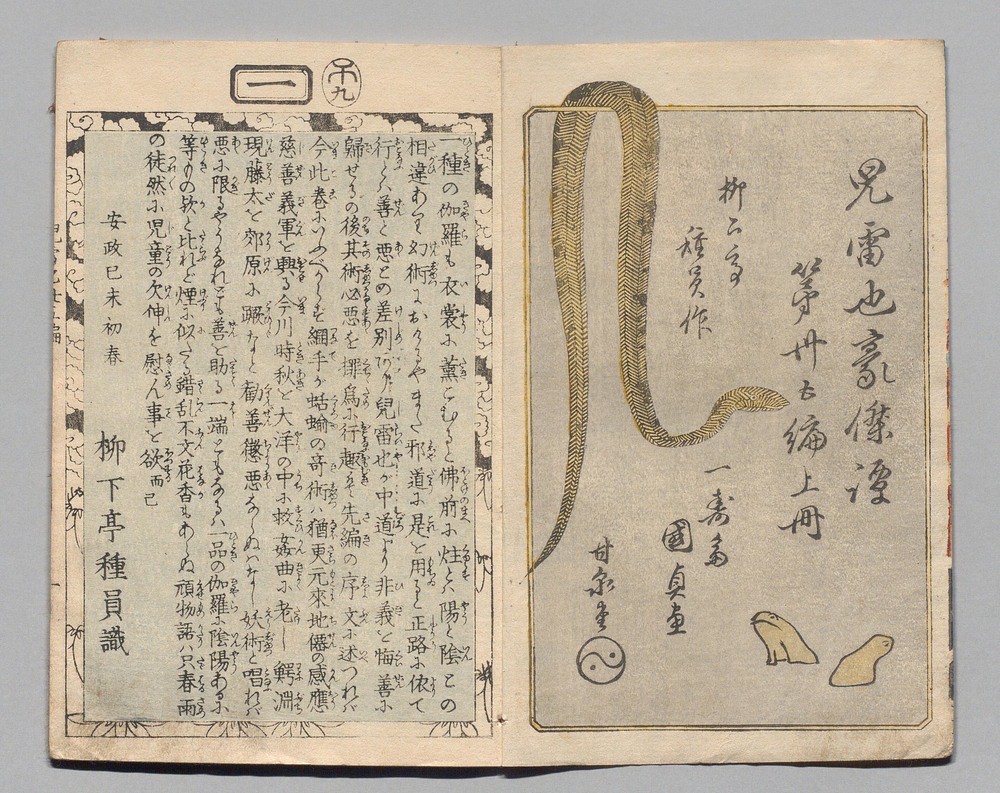 児雷也豪傑譚
第卅五編上冊
柳下亭
種員作
一寿斎
國貞画
甘泉堂
一
十九
一種の伽羅も衣裳に薫こむると佛前に炷とハ陽と陰この
相違あり幻術におけるもまた邪道に是を用ると正路に依て
行とハ善と悪との差別あり児雷也が中道より非義を悔善に
歸せるの後其術必悪を挫爲に行趣ハ先編の序文に述つれバ
今此巻にいふべからず綱手が蛞蝓の奇術ハ猶更元來地僊の感應
慈善義軍を興る今川時秋を大洋の中に救ひ姦曲に老し鰐淵
現藤太を郊原に蹶など勧善懲悪ならぬハなし妖術と唱れバ
悪に限るやうなれども善を助る一端ともなるハ一品の伽羅に陰陽あるに
等きもの歟と比れど煙に似たる錯乱不文花香もあらぬ頑物語ハ只春雨
の徒然に児童の欠伸を慰ん事を欲而已
安政己未初春
柳下亭種員識